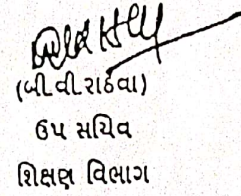 (બી.વી.રાઠવા)
ઉપ સચિવ
શિક્ષણ વિભાગ